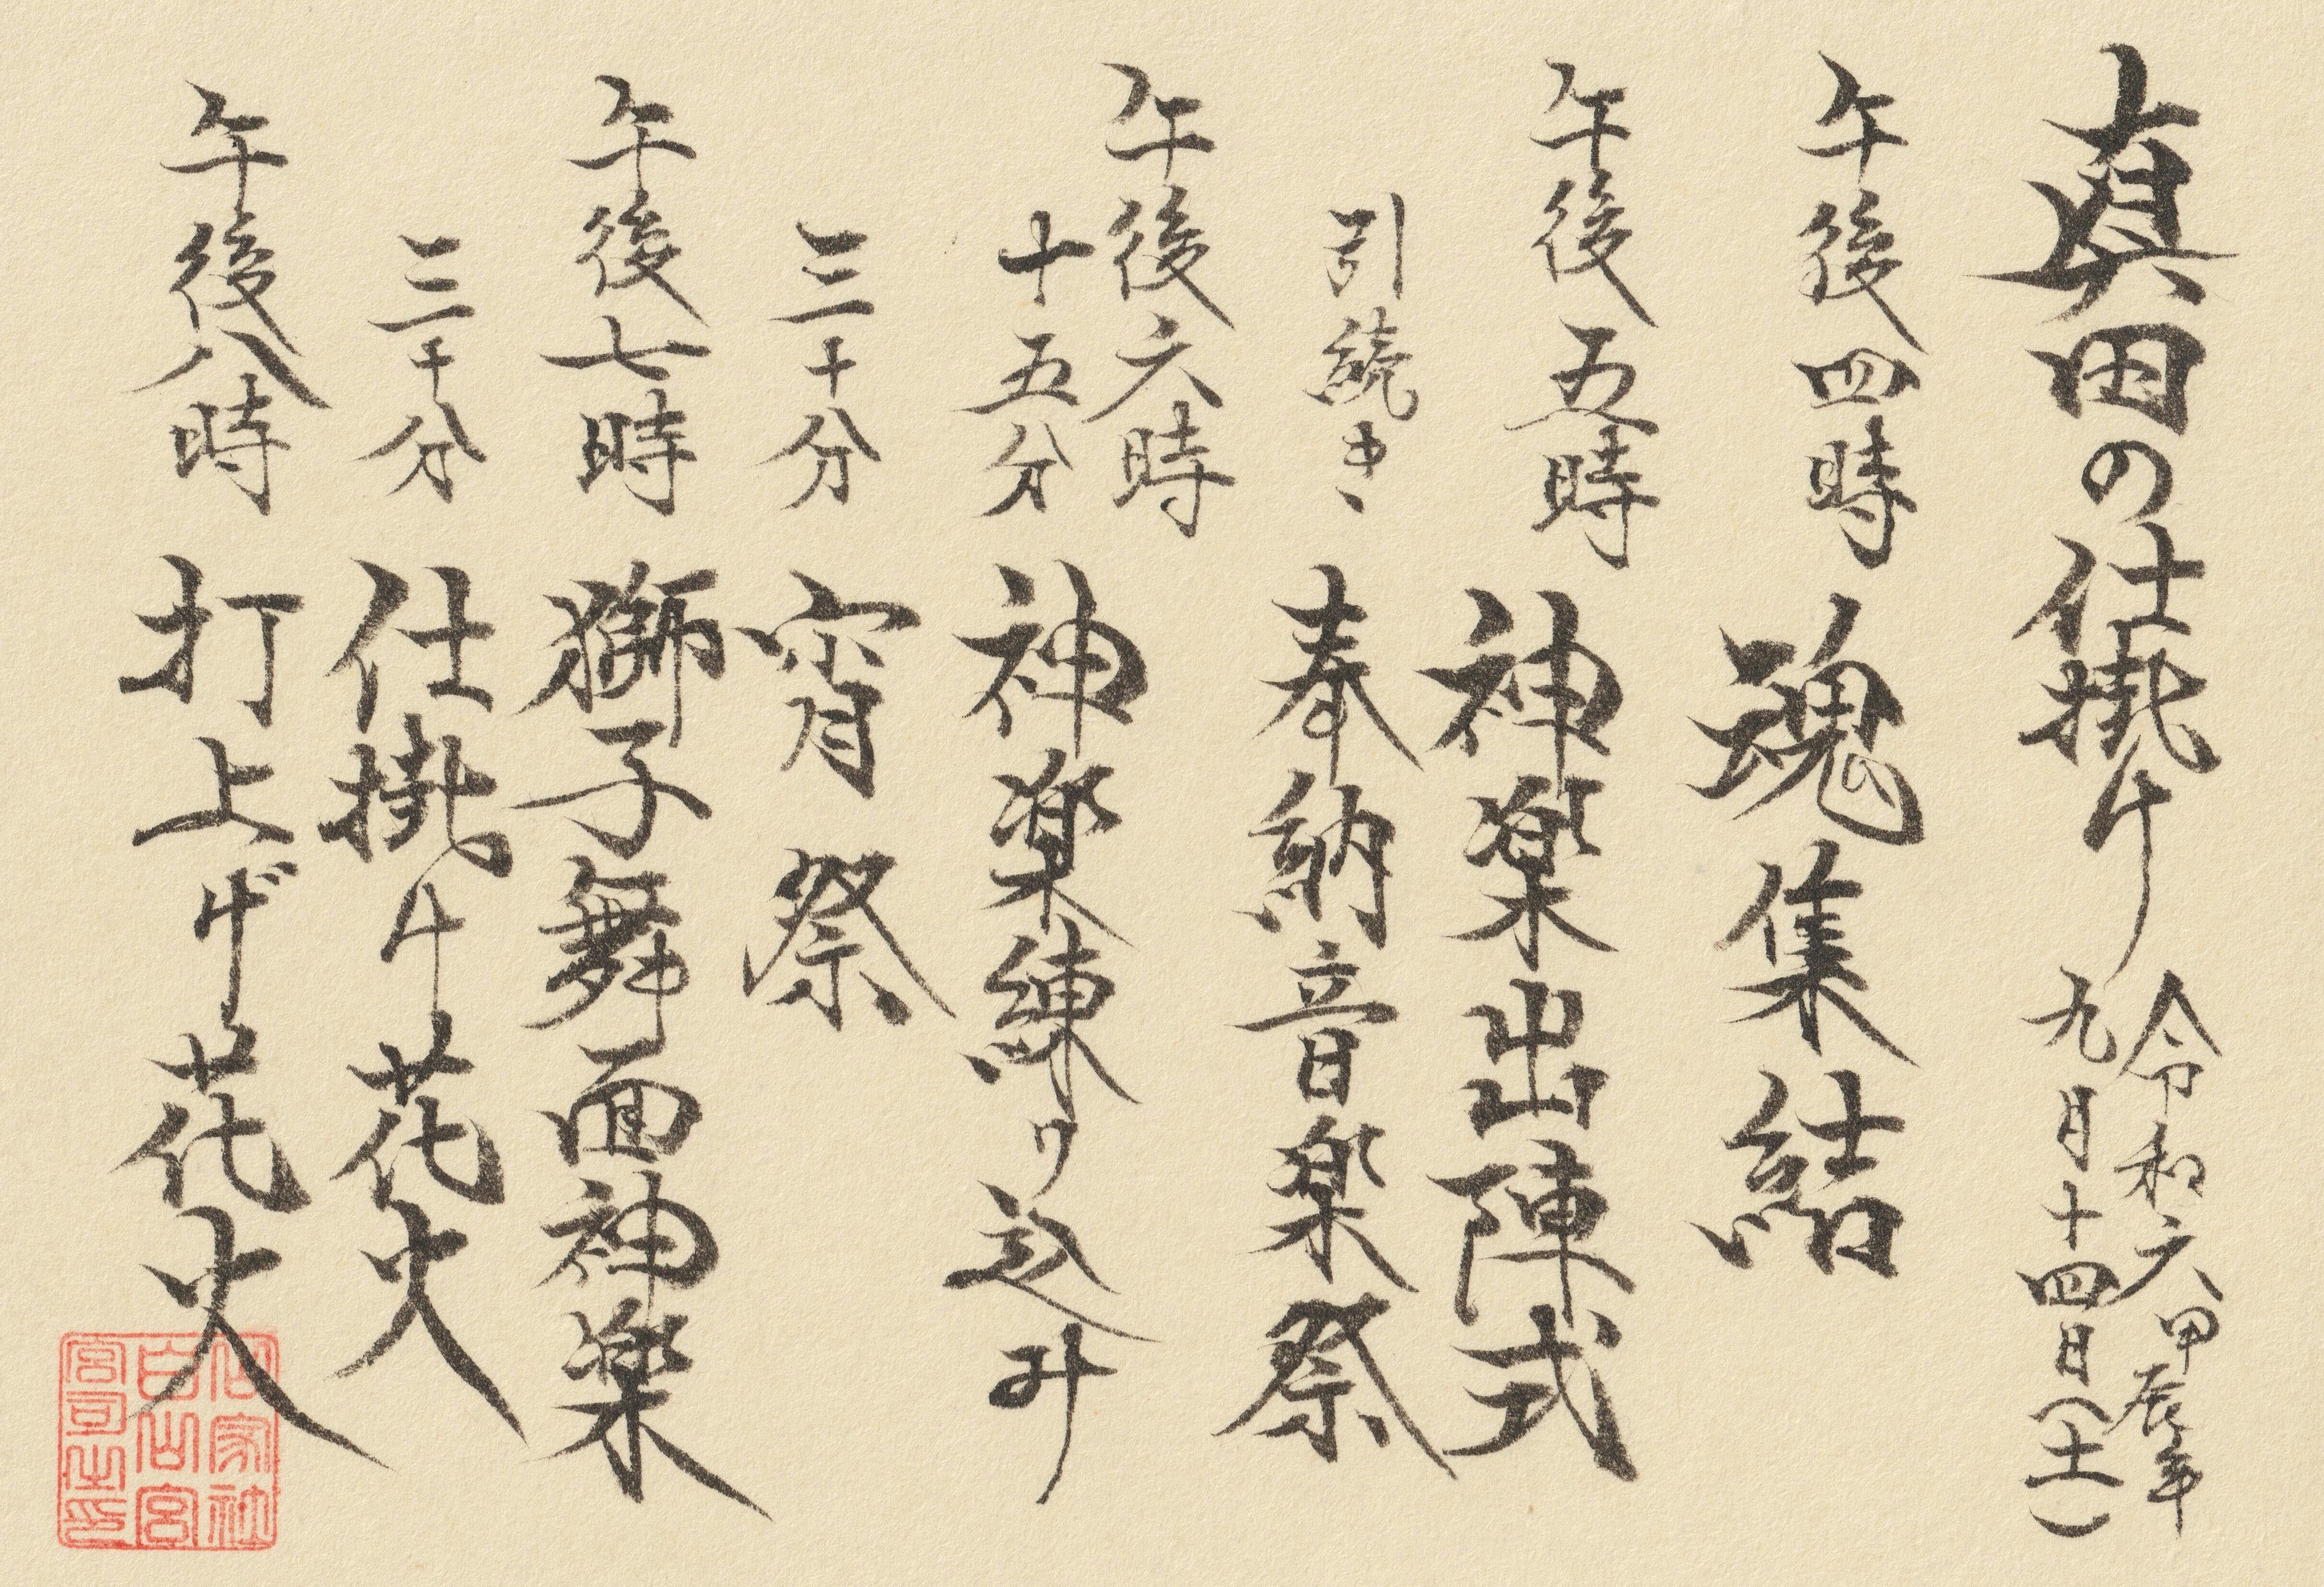 真田の仕掛け
令和六甲辰年
九月十四日(土)
午後四時 魂集結
午後五時 神楽出陣式
引続き、 奉納音楽祭
午後六時
十五分 神楽練り込み
三十分 宵祭
午後七時 獅子舞面神楽
三十分 仕掛け花火
午後八時 打上げ花火
山家社
白山宮
宮司之印